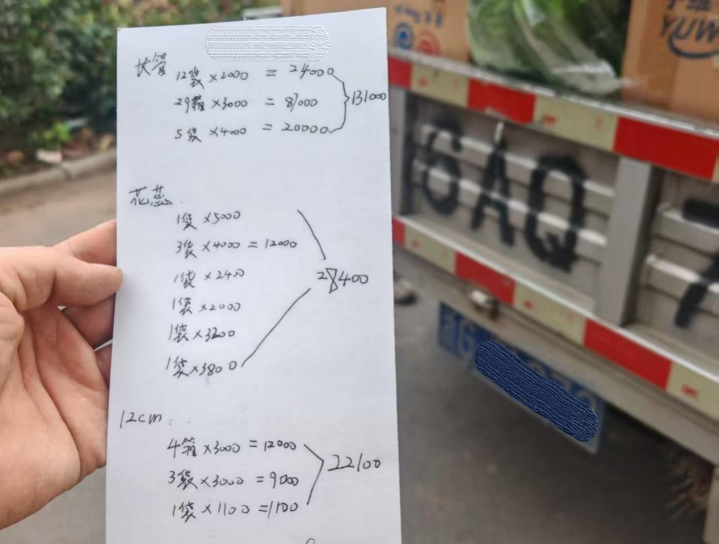 长管
12袋×2000 = 24000
29箱×3000 = 87000
5袋×4000 = 20000
131000
花蕊
1袋×5000
3袋×4000 = 12000
1袋×2400
1袋×2000
1袋×3200
1袋×3800
28400
12cm:
4箱×3000 = 12000
3袋×3000 = 9000
1袋×1100 = 1100
22100
YUW
6AQ